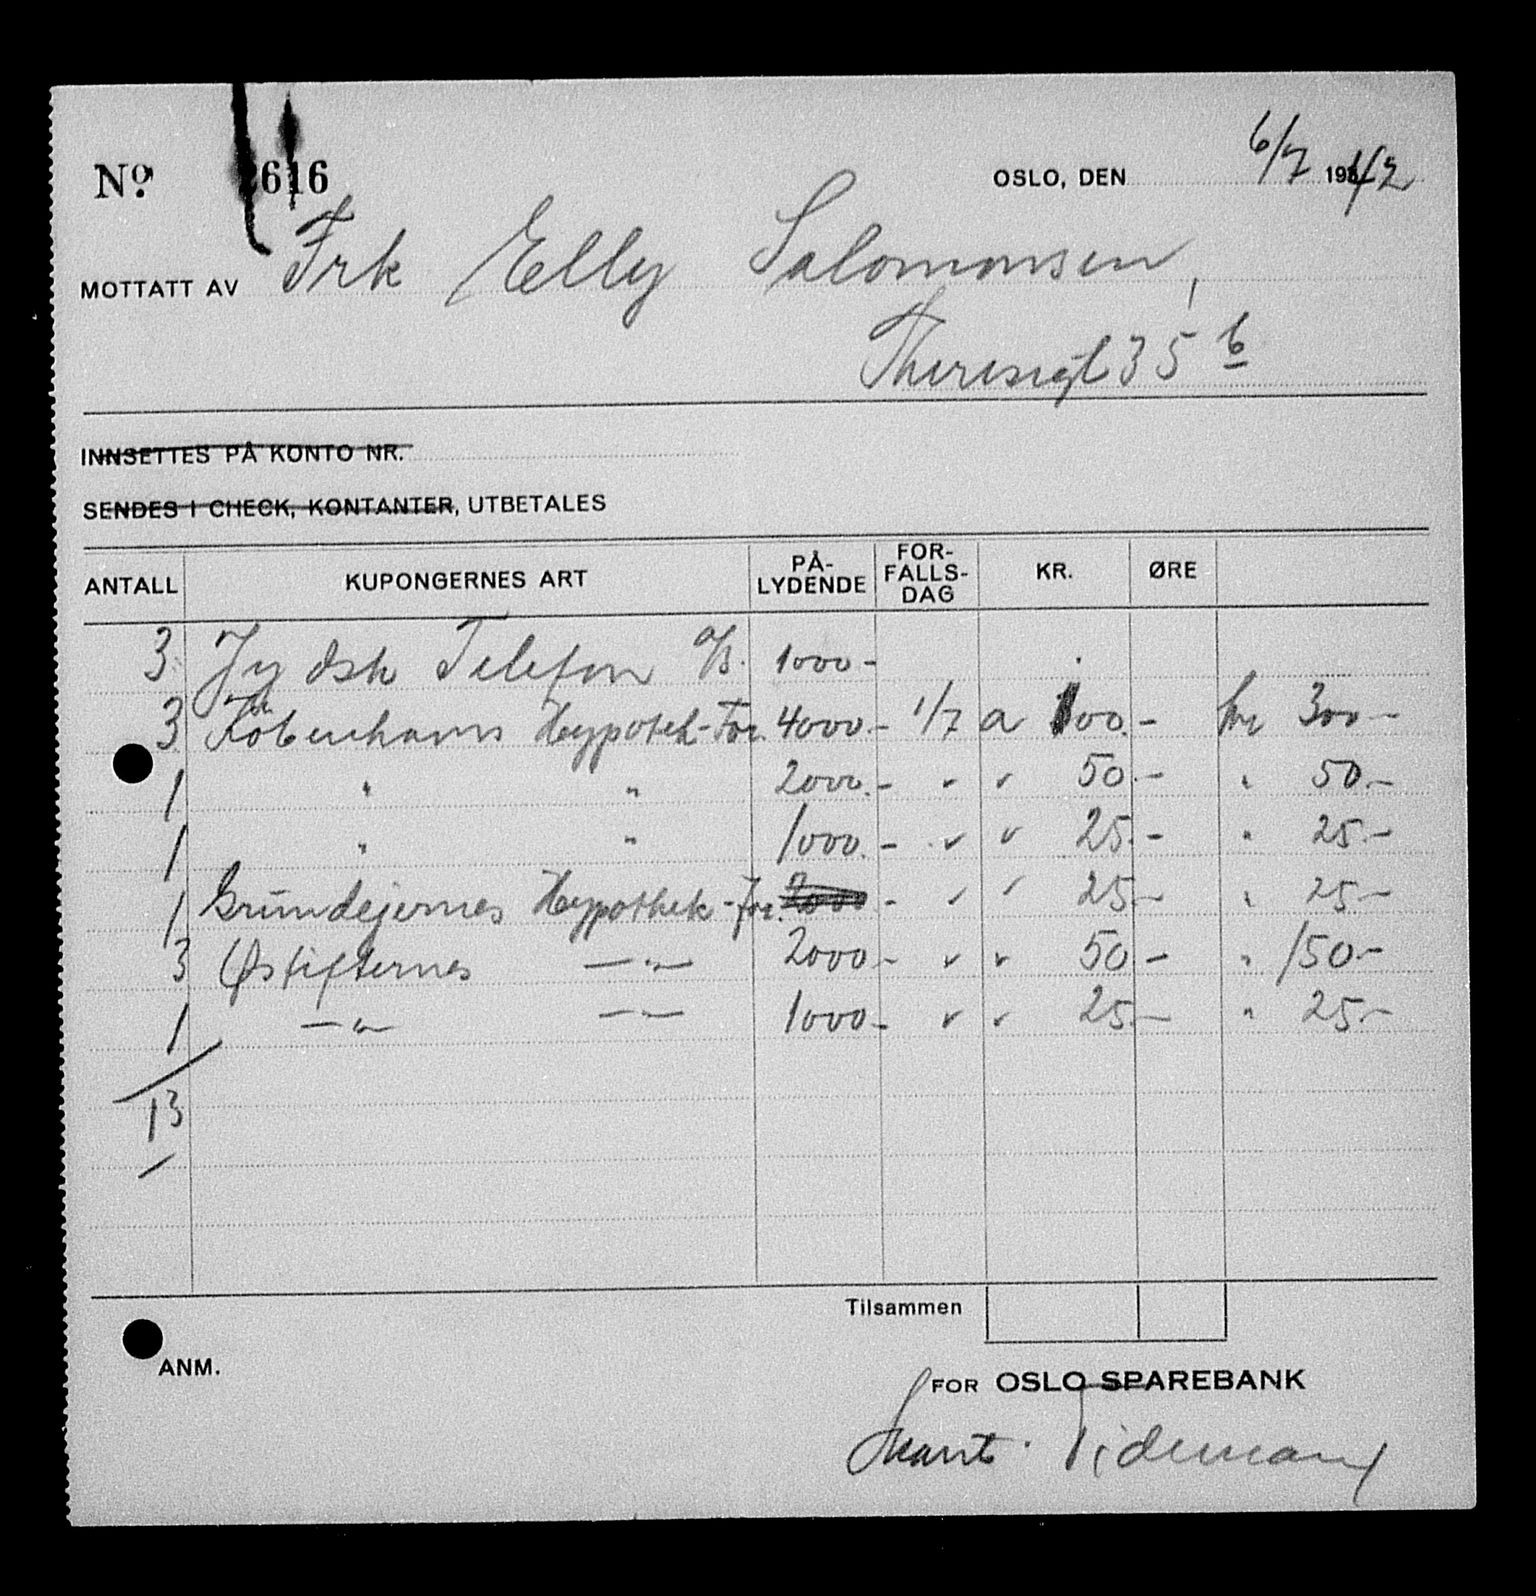 Nº. 2616 OSLO, DEN 6/7 1942
MOTTATT AV Frk Elly Salomonsen,
Theresigt 35 b
INNSETTES PÅ KONTO NR.
SENDES I CHECK, KONTANTER, UTBETALES
ANTALL KUPONGERNES ART PÅ-LYDENDE FOR-FALLS-DAG KR. ØRE
3 Jydsk Telefon A/S. 1000-
3 Københavns Hypotek-For. 4000.- 1/7 a 100.- kr 300-
1 " " 2000.- " " 50.- " 50.-
1 " " 1000.- " " 25.- " 25.-
1 Grundejernes Hypothek-for. 2000 - " " 25- " 25.-
3 Østifternes -"- 2000- " " 50- " 150.-
1 -"- -"- 1000- " " 25.- " 25.-
13
Tilsammen
ANM.
FOR OSLO SPAREBANK
Tidemand